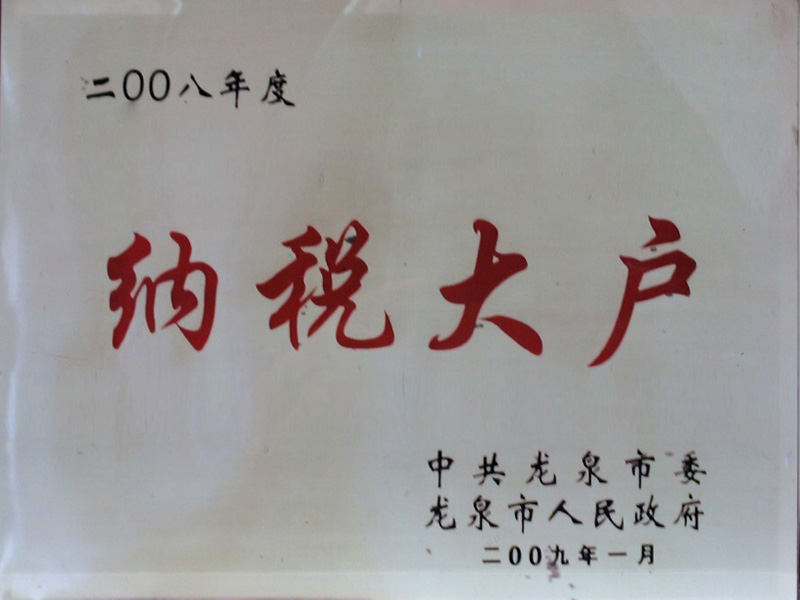 二00八年度
纳税大户
中共龙泉市委
龙泉市人民政府
二00九年一月